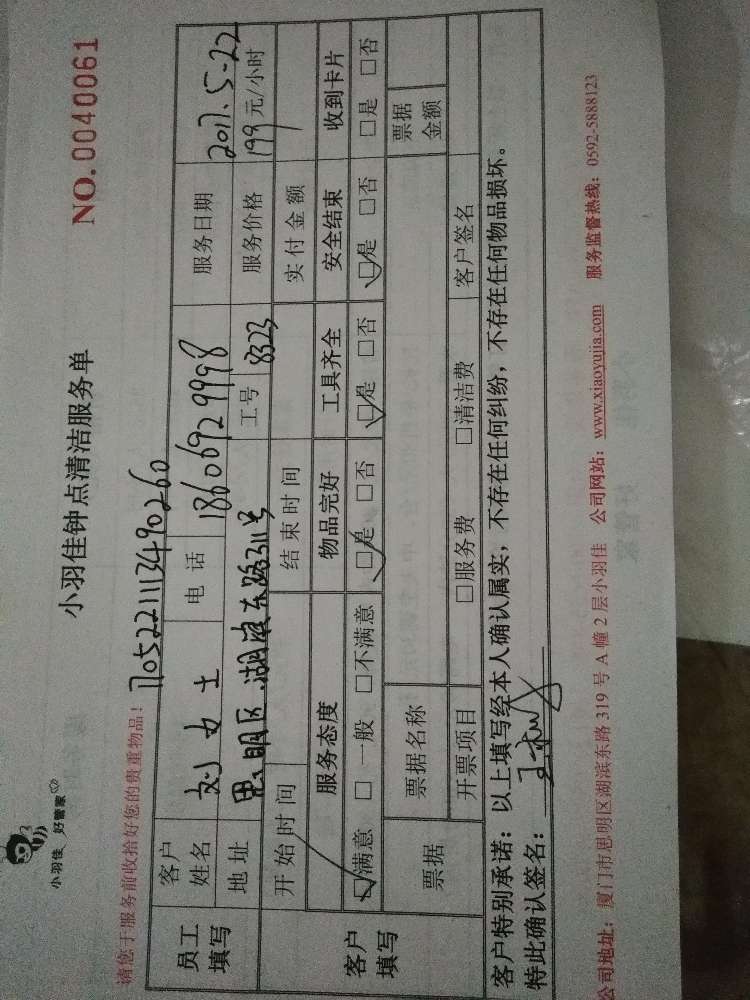 小羽佳 好管家
小羽佳钟点清洁服务单
NO. 0040061
请您于服务前收拾好您的贵重物品!
1705221113490260
员工填写
客户姓名 刘女士 电话 18606929998 服务日期 2017.5-22
地址 思明区湖滨东路311号 工号 8323 服务价格 199元/小时
客户填写
开始时间 结束时间 实付金额
服务态度 物品完好 工具齐全 安全结束 收到卡片
☑满意 □一般 □不满意 ☑是 □否 ☑是 □否 ☑是 □否 □是 □否
票据 票据名称 票据金额
开票项目 □服务费 □清洁费 客户签名
客户特别承诺:以上填写经本人确认属实,不存在任何纠纷,不存在任何物品损坏。
特此确认签名:
公司地址:厦门市思明区湖滨东路319号A幢2层小羽佳 公司网站:www.xiaoyujia.com 服务监督热线:0592-5888123